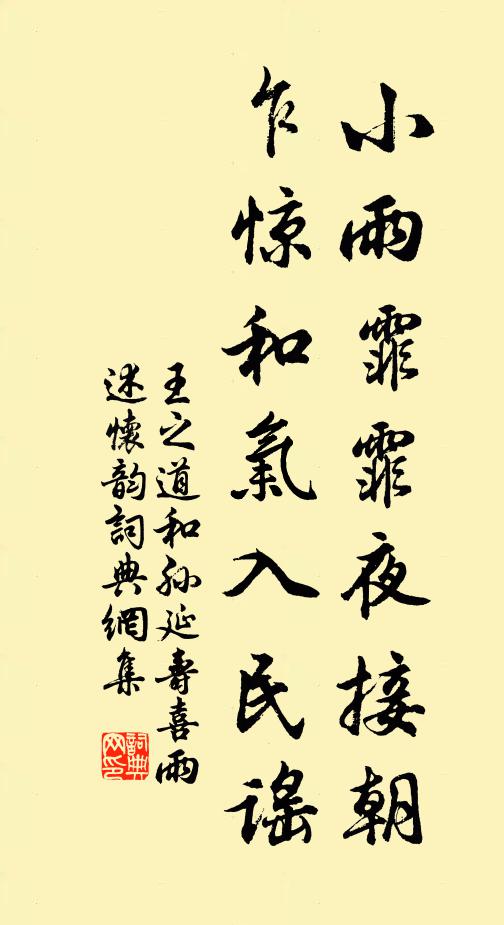 小雨霏霏夜接朝
乍惊和氣入民謠
王之道和孙延壽喜雨
述懷韵詞典網集
詞典
网印